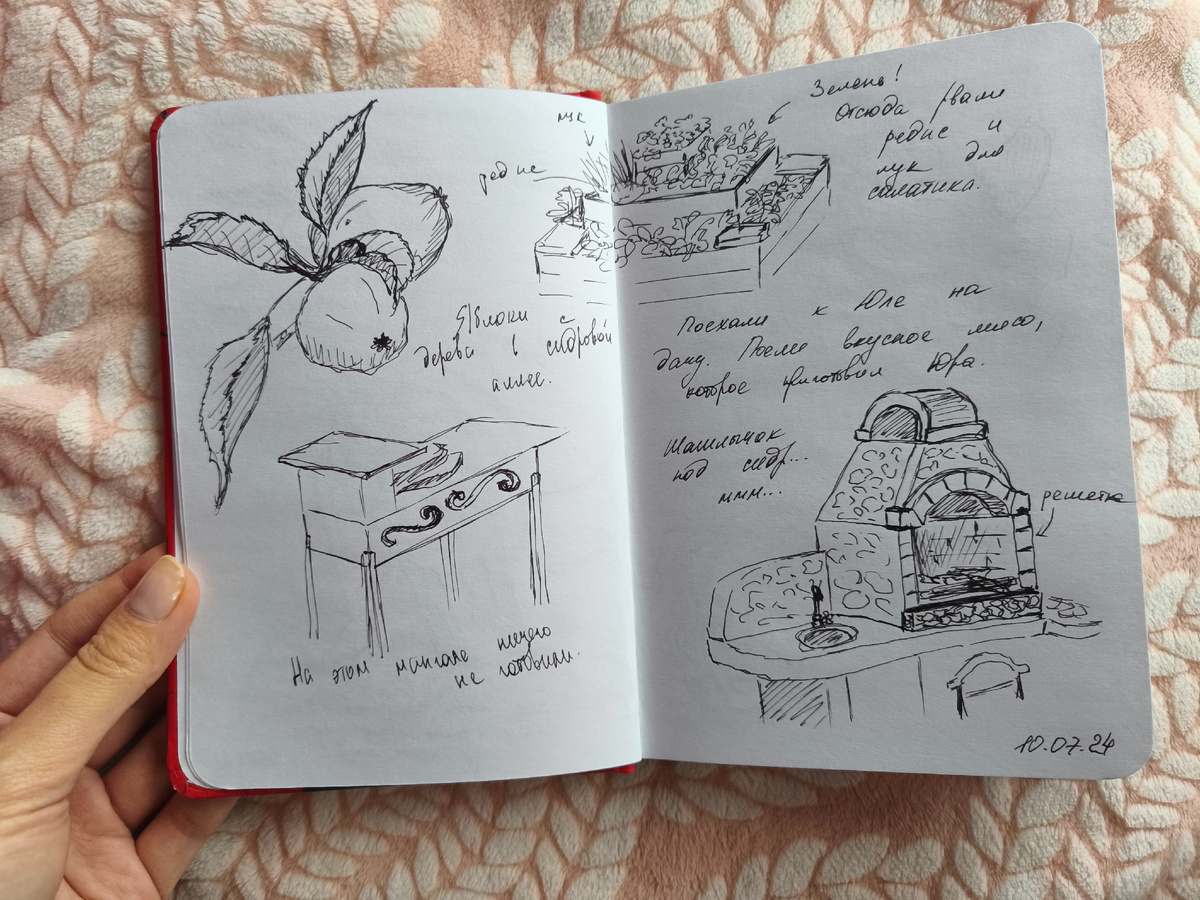 лук
редис
Яблоки с
дерева в сидровой
аллее.
На этом мангале ничего
не готовили.
Зелень!
Отсюда рвали
редис и
лук для
салатика.
Поехали к Юле на
дачу. Поели вкусное мясо,
которое приготовил Юра.
Шашлычок
под сидр...
ммм...
решетка
10.07.24